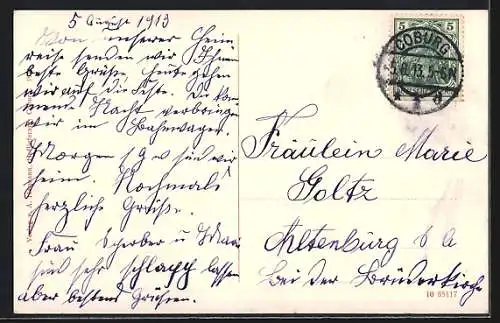 5 August 1913
Von unserer Heim
reise senden wir Ihnen
beste Grüße, heute gehen
wir auf die Feste. Die kom
mende Nacht verbringen
wir im Bahnwagen.
Morgen sind wir
heim. Nochmals
herzliche Grüße.
Frau u
sind sehr schlapp lassen
aber bestens Grüßen.
5 5
COBURG
13. 5-6
Fräulein Marie
Goltz
Altenburg S A
bei der Brüderkirche
10 65117